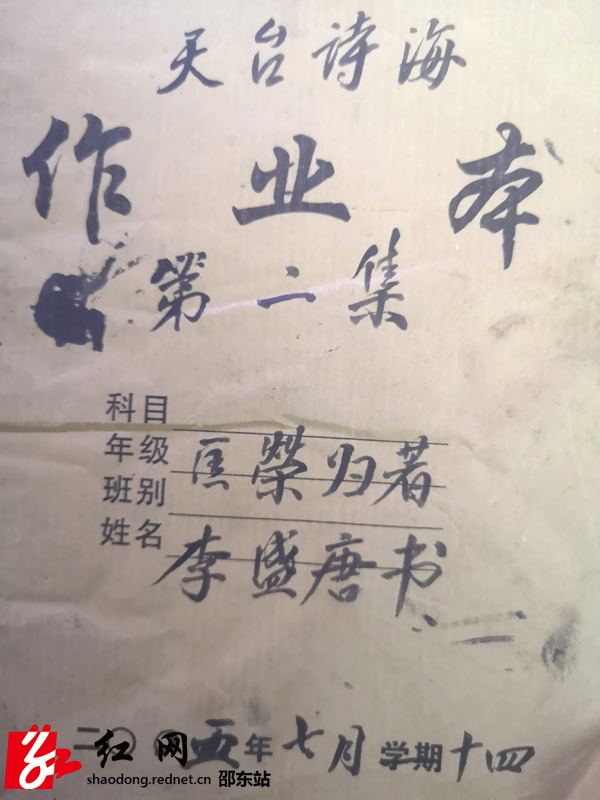 天台诗海
作业本
第二集
科目
年级
班别
姓名
匡榮归著
李盛唐书
二〇 五年七月学期十四
红网
shaodong.rednet.cn 邵东站